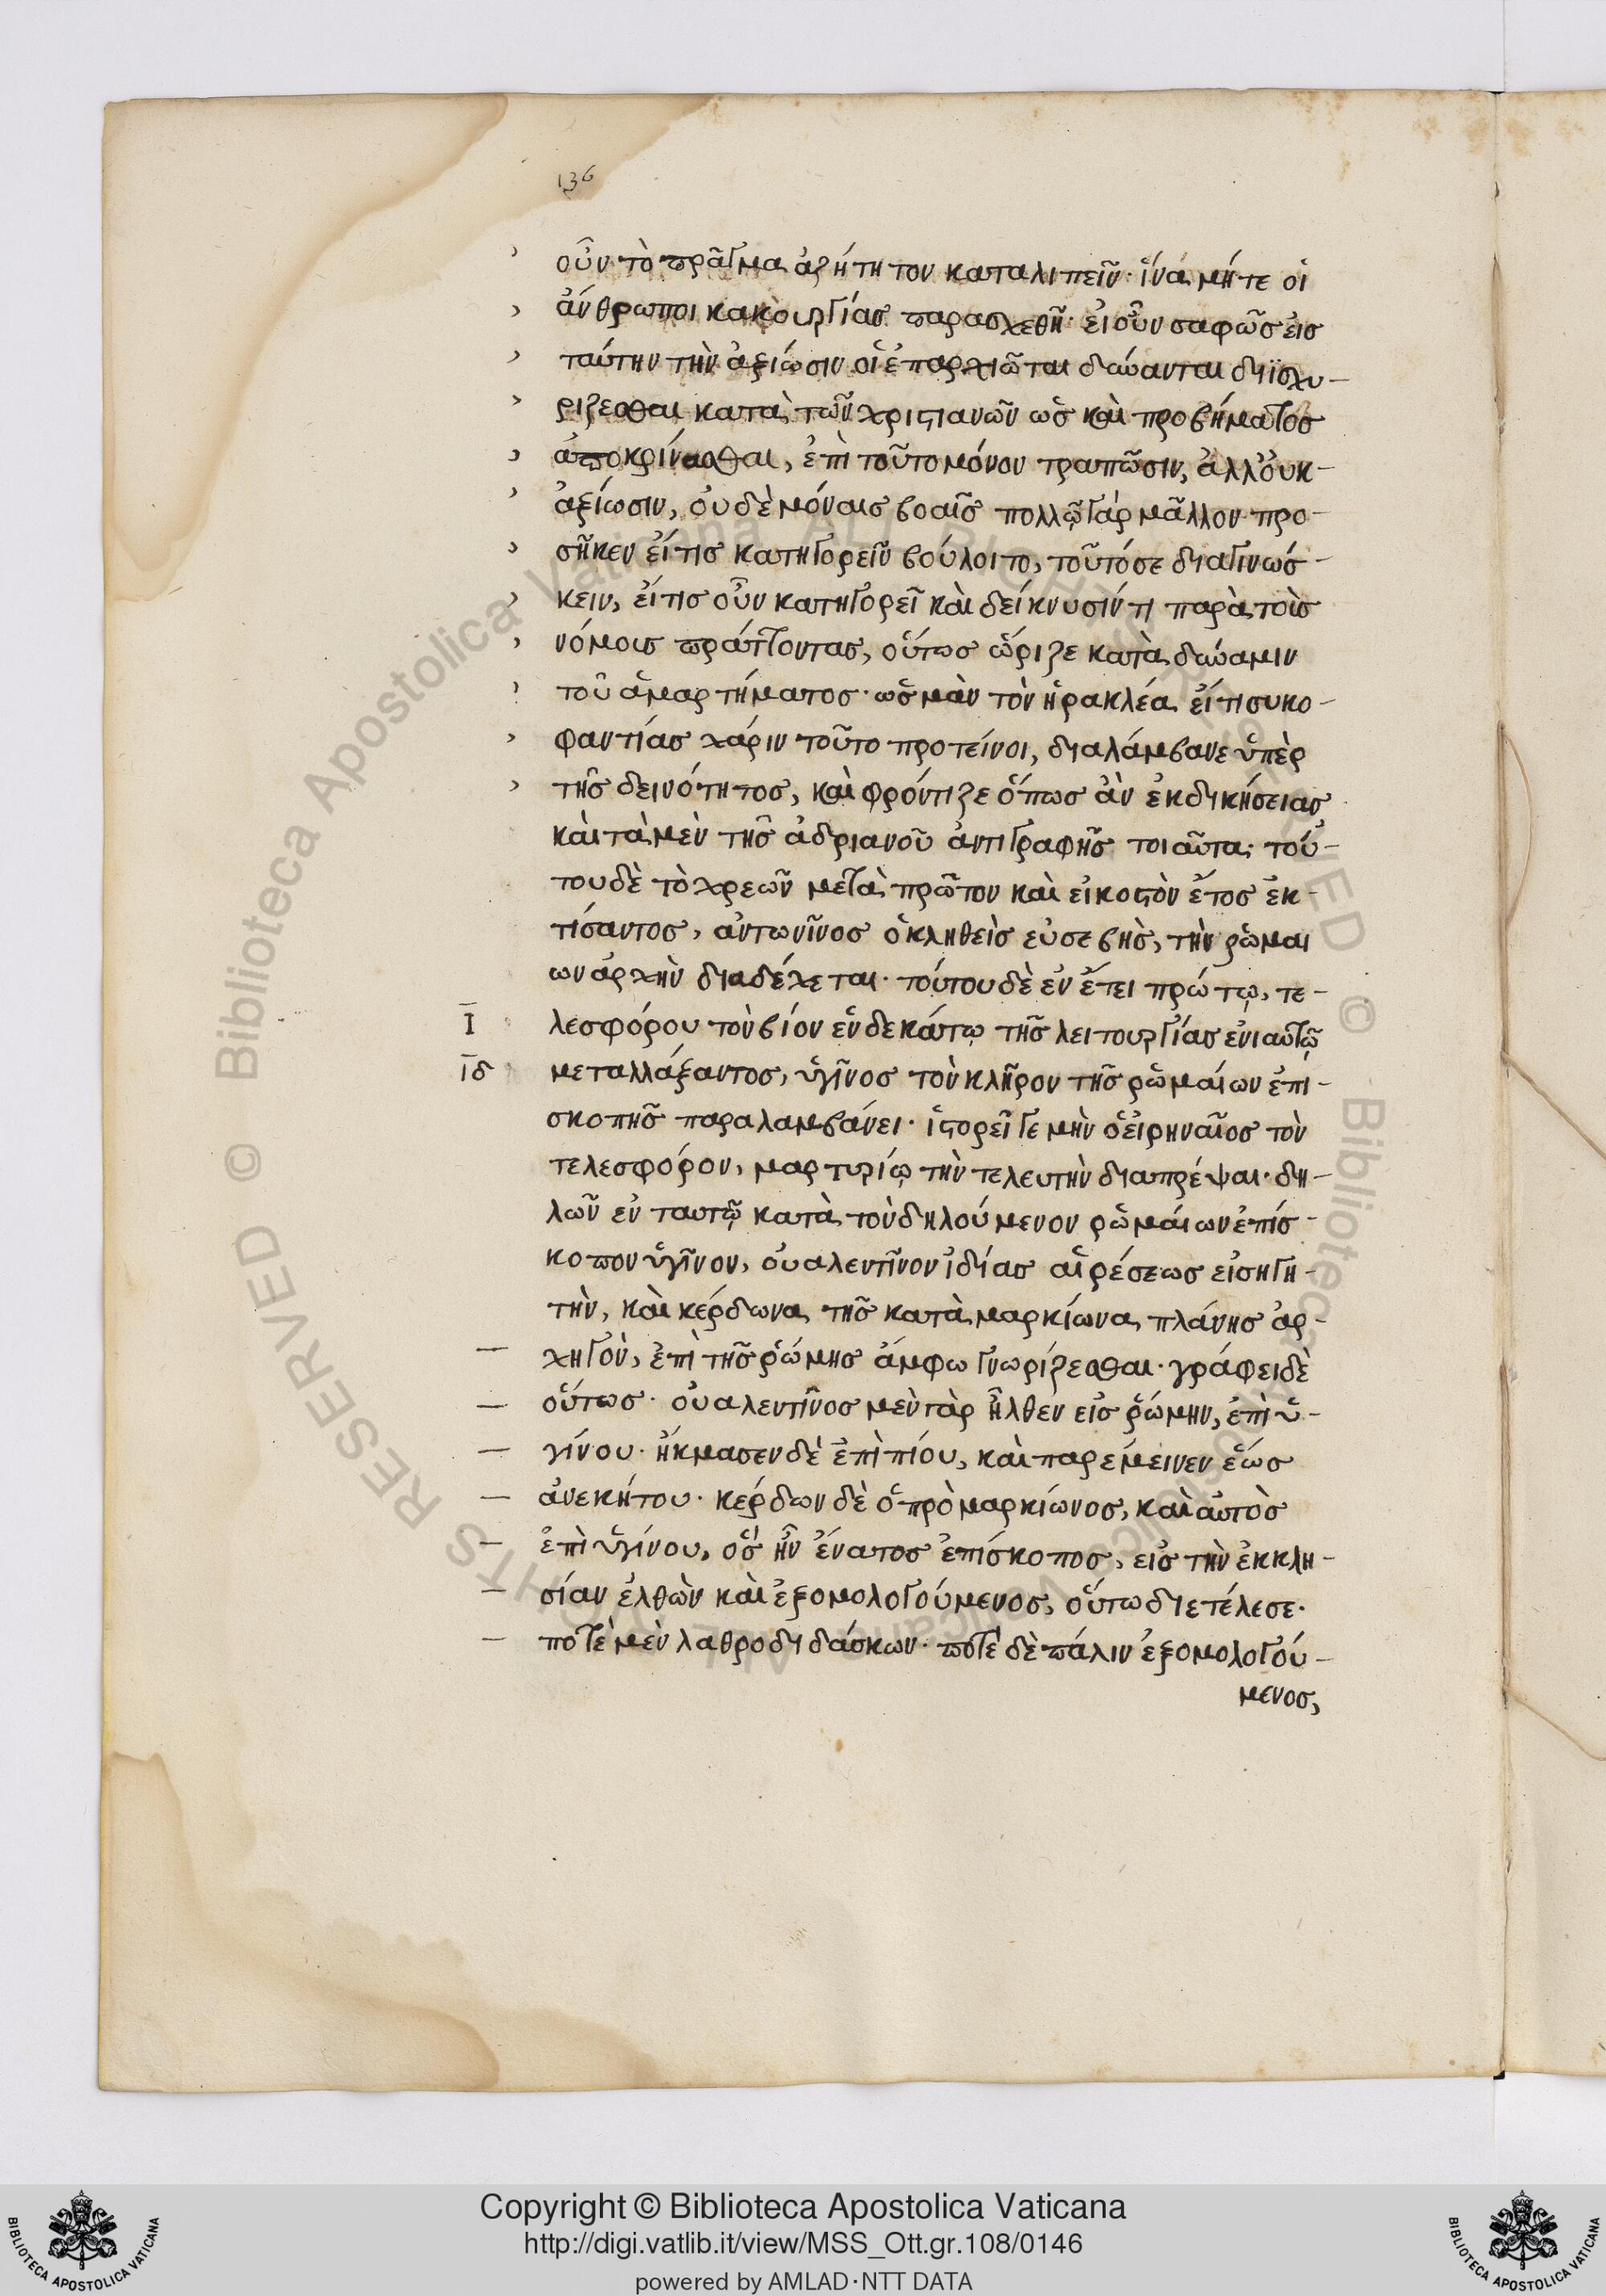 136
οὖν τὸ πρᾶγμα ἀζήτητον καταλιπεῖν· ἵνα μήτε οἱ
ἄνθρωποι κακουργίας παρασχεθῆ· εἰ οὖν σαφῶς εἰς
ταύτην τὴν ἀξιώσιν οἱ ἐπαρχιῶται δύνανται διϊσχυ-
ρίζεσθαι κατὰ τῶν χριστιανῶν ὡς καὶ προ βήματος
ἀποκρίνασθαι, ἐπὶ τοῦτο μόνον τραπῶσιν, ἀλλ' οὐκ-
ἀξίωσιν, οὐδὲ μόναις βοαῖς πολλῷ γὰρ μᾶλλον προ-
σῆκεν εἴ τις κατηγορεῖν βούλοιτο, τοῦτό σε διαγινώσ-
κειν, εἴ τις οὖν κατηγορεῖ καὶ δείκνυσίν τι παρὰ τοὶς
νόμοις πράττοντας, οὕτως ὥριζε κατὰ δύναμιν
τοῦ ἁμαρτήματος· ὡς μὰν τὸν ἡρακλέα εἴ τι συκο-
φαντίας χάριν τοῦτο προτείνοι, διαλάμβανε ὑπὲρ
τῆς δεινότητος, καὶ φρόντιζε ὅπως ἂν ἐκδικήσειας
καὶ τὰ μὲν τῆς ἀδριανοῦ ἀντιγραφῆς τοιαῦτα· τού-
του δὲ τὸ χρεὼν μετὰ πρῶτον καὶ εἰκοστὸν ἔτος ἐκ-
τίσαντος, ἀντωνῖνος ὁ κληθεὶς εὐσεβὴς, τὴν ῥωμαι
ων ἀρχὴν διαδέχεται· τούτου δὲ ἐν ἔτει πρώτῳ, τε-
Ι λεσφόρου τὸν βίον ἑνδεκάτῳ τῆς λειτουργίας ἐνιαυτῷ
ΙΔ μεταλλάξαντος, ὑγῖνος τὸν κλῆρον τῆς ῥωμαίων ἐπι-
σκοπῆς παραλαμβάνει· ἱστορεῖ γε μὴν ὁ εἰρηναῖος τὸν
τελεσφόρον, μαρτυρίῳ τὴν τελευτὴν διαπρέψαι· δη-
λῶν ἐν ταυτῷ κατὰ τὸν δηλούμενον ῥωμαίων ἐπίσ-
κοπον ὑγῖνον, οὐαλεντῖνον ἰδίας αἱρέσεως εἰσηγη-
τὴν, καὶ κέρδωνα τῆς κατὰ μαρκίωνα πλάνης ἀρ-
χηγὸν, ἐπὶ τῆς ῥώμης ἄμφω γνωρίζεσθαι· γράφει δὲ
οὕτως· οὐαλεντῖνος μὲν γὰρ ἦλθεν εἰς ῥώμην, ἐπὶ ὑ-
γίνου· ἤκμασεν δὲ ἐπὶ πίου, καὶ παρέμεινεν ἕως
ἀνεκήτου· κέρδων δὲ ὁ πρὸ μαρκίωνος, καὶ αὐτὸς
ἐπὶ ὑγίνου, ὃς ἦν ἔνατος ἐπίσκοπος, εἰς τὴν ἐκκλη-
σίαν ἐλθὼν καὶ ἐξομολογούμενος, οὕτω διετέλεσε·
ποτὲ μὲν λαθροδιδάσκων· ποτὲ δὲ πάλιν ἐξομολογού-
μενος,
Copyright © Biblioteca Apostolica Vaticana
http://digi.vatlib.it/view/MSS_Ott.gr.108/0146
powered by AMLAD·NTT DATA